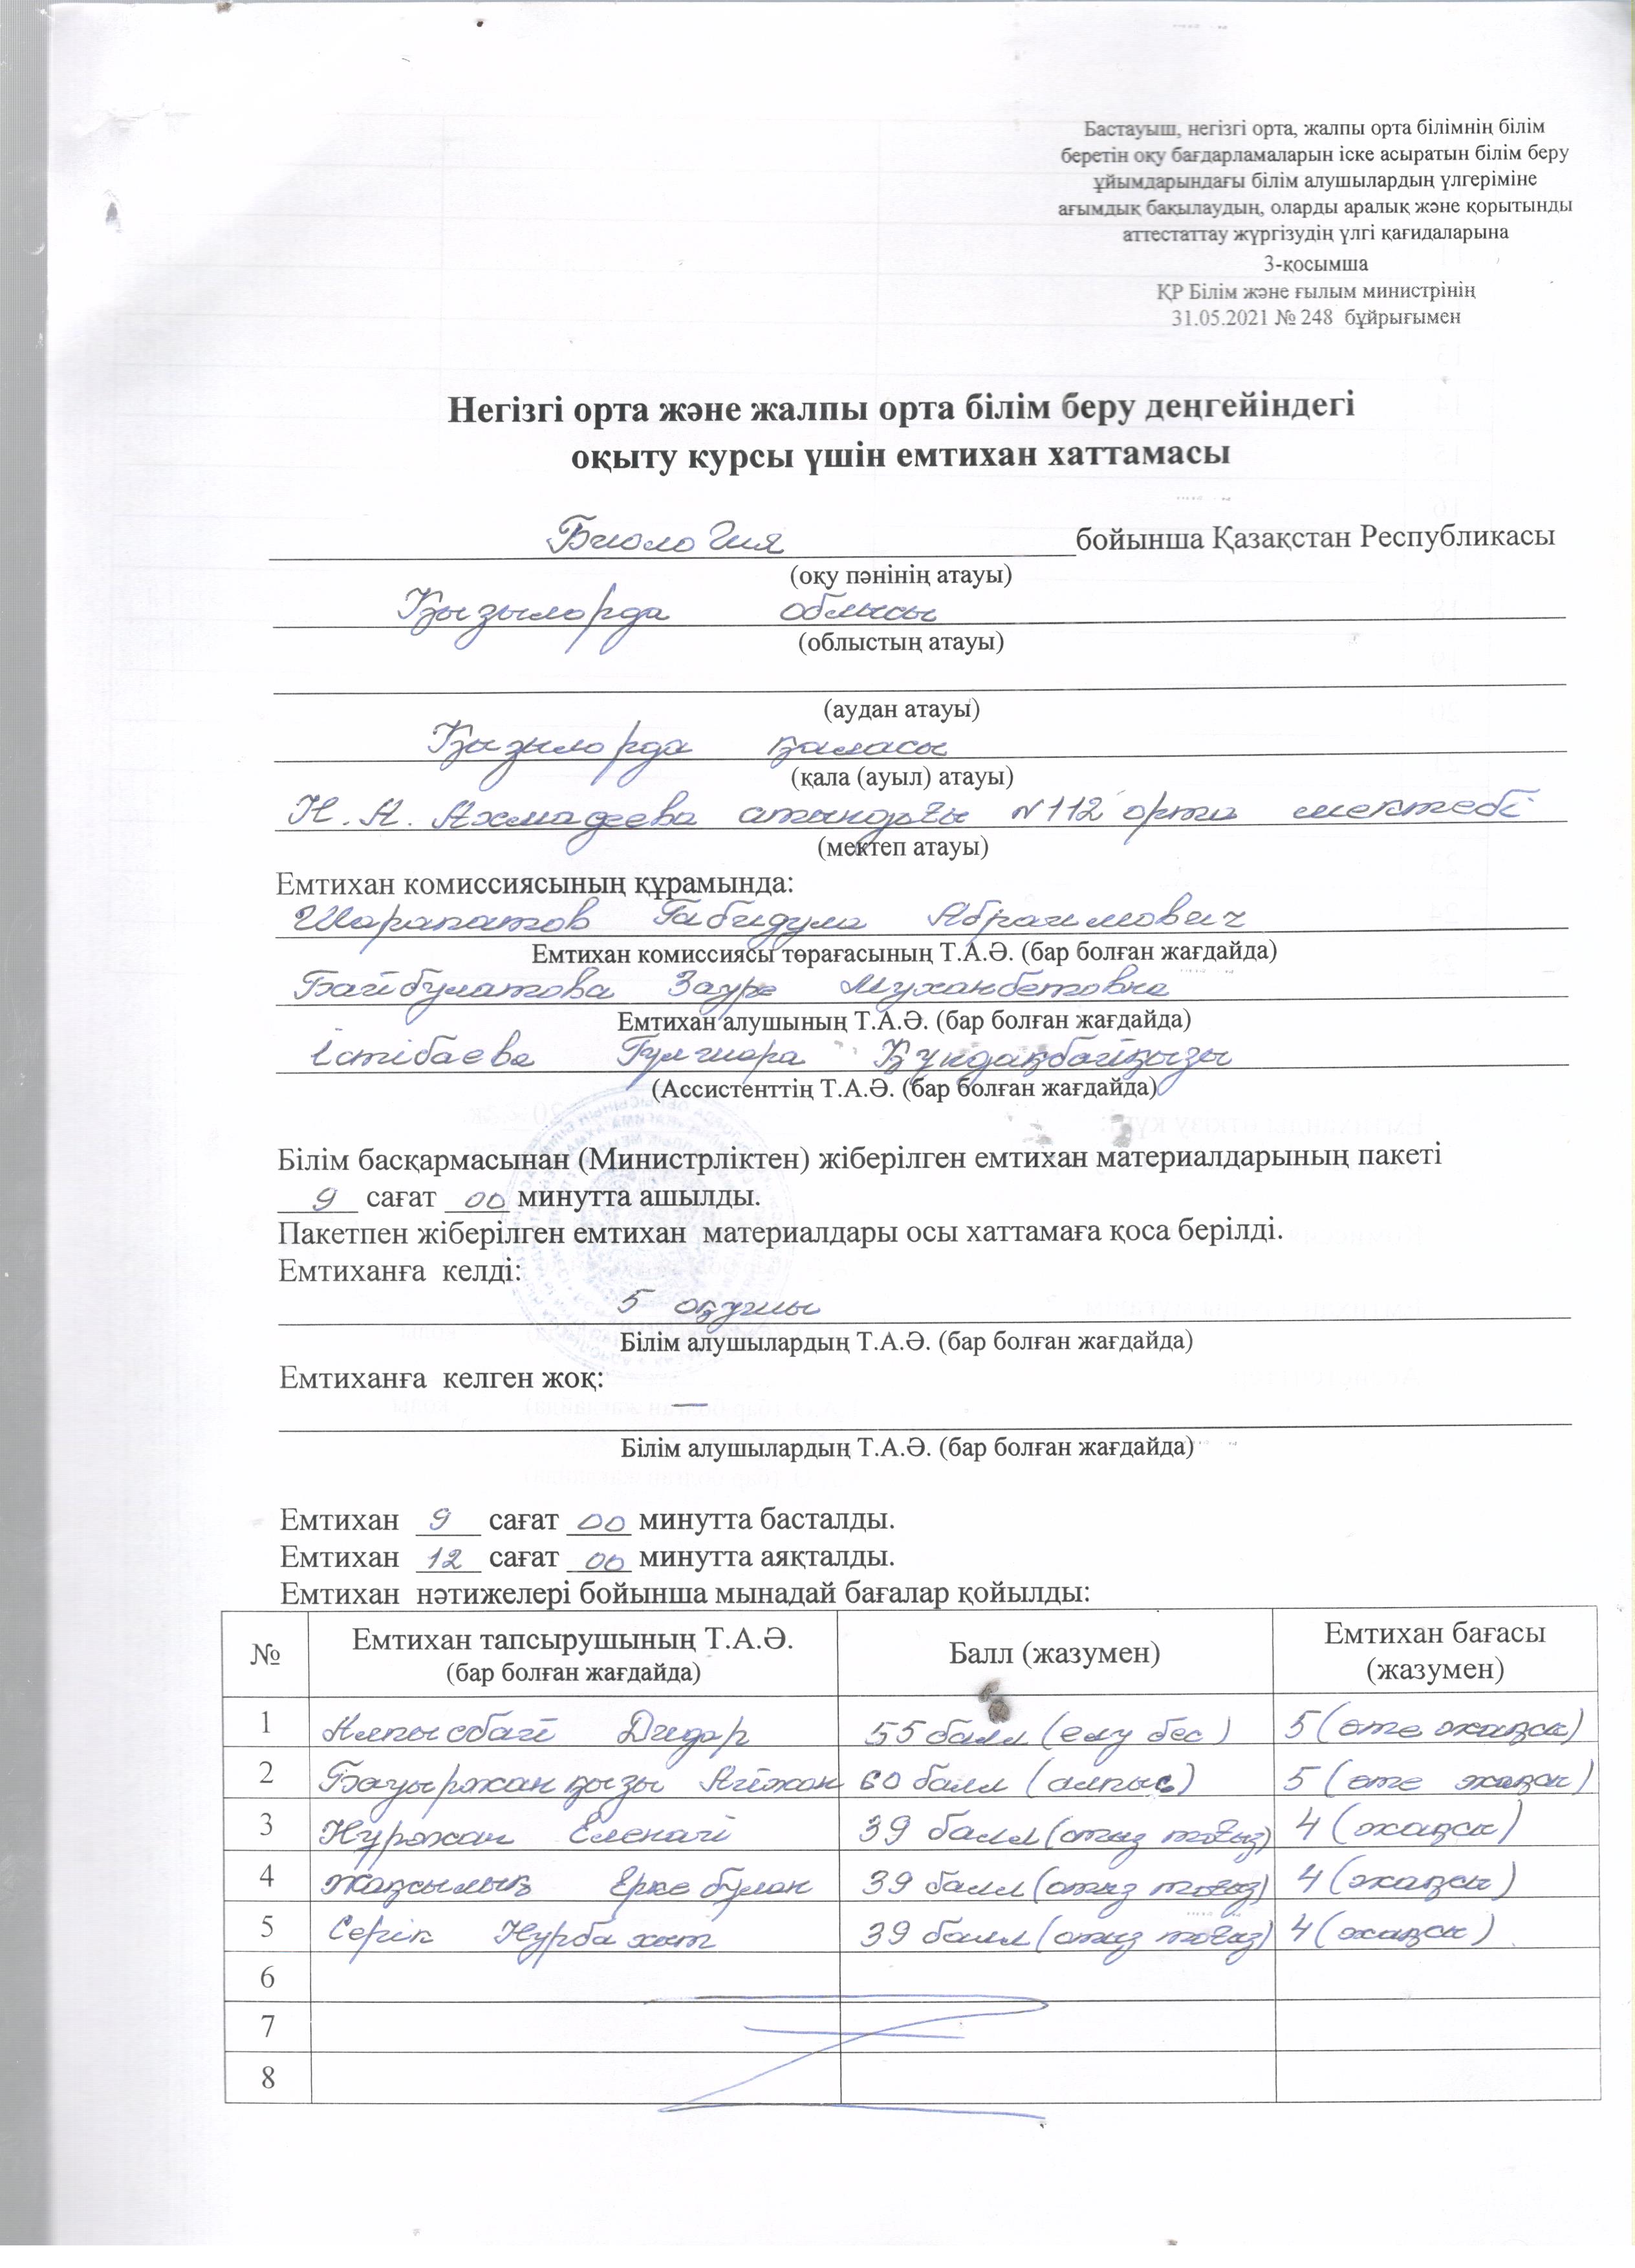 Бастауыш, негізгі орта, жалпы орта білімнің білім
беретін оқу бағдарламаларын іске асыратын білім беру
ұйымдарындағы білім алушылардың үлгеріміне
ағымдық бақылаудың, оларды аралық және қорытынды
аттестаттау жүргізудің үлгі қағидаларына
3-қосымша
ҚР Білім және ғылым министрінің
31.05.2021 № 248 бұйрығымен
Негізгі орта және жалпы орта білім беру деңгейіндегі
оқыту курсы үшін емтихан хаттамасы
Биология бойынша Қазақстан Республикасы
(оқу пәнінің атауы)
Қызылорда облысы
(облыстың атауы)
(аудан атауы)
Қызылорда қаласы
(қала (ауыл) атауы)
Н.А. Ахмадеева атындағы №112 орта мектебі
(мектеп атауы)
Емтихан комиссиясының құрамында:
Шарапатов Габидула Абрагимович
Емтихан комиссиясы төрағасының Т.А.Ә. (бар болған жағдайда)
Байбулатова Зауре Муханбетовна
Емтихан алушының Т.А.Ә. (бар болған жағдайда)
Істібаева Гулшара Құндақбайқызы
(Ассистенттің Т.А.Ә. (бар болған жағдайда)
Білім басқармасынан (Министрліктен) жіберілген емтихан материалдарының пакеті
9 сағат 00 минутта ашылды.
Пакетпен жіберілген емтихан материалдары осы хаттамаға қоса берілді.
Емтиханға келді:
5 оқушы
Білім алушылардың Т.А.Ә. (бар болған жағдайда)
Емтиханға келген жоқ:
—
Білім алушылардың Т.А.Ә. (бар болған жағдайда)
Емтихан 9 сағат 00 минутта басталды.
Емтихан 12 сағат 00 минутта аяқталды.
Емтихан нәтижелері бойынша мынадай бағалар қойылды:
№ Емтихан тапсырушының Т.А.Ә. (бар болған жағдайда) Балл (жазумен) Емтихан бағасы (жазумен)
1 Алпысбай Дидар 55 балл (елу бес) 5 (өте жақсы)
2 Бауыржанқызы Айжан 60 балл (алпыс) 5 (өте жақсы)
3 Нұржан Еленай 39 балл (отыз тоғыз) 4 (жақсы)
4 Жақсылық Еркебұлан 39 балл (отыз тоғыз) 4 (жақсы)
5 Серік Нурбахыт 39 балл (отыз тоғыз) 4 (жақсы)
6
7
8